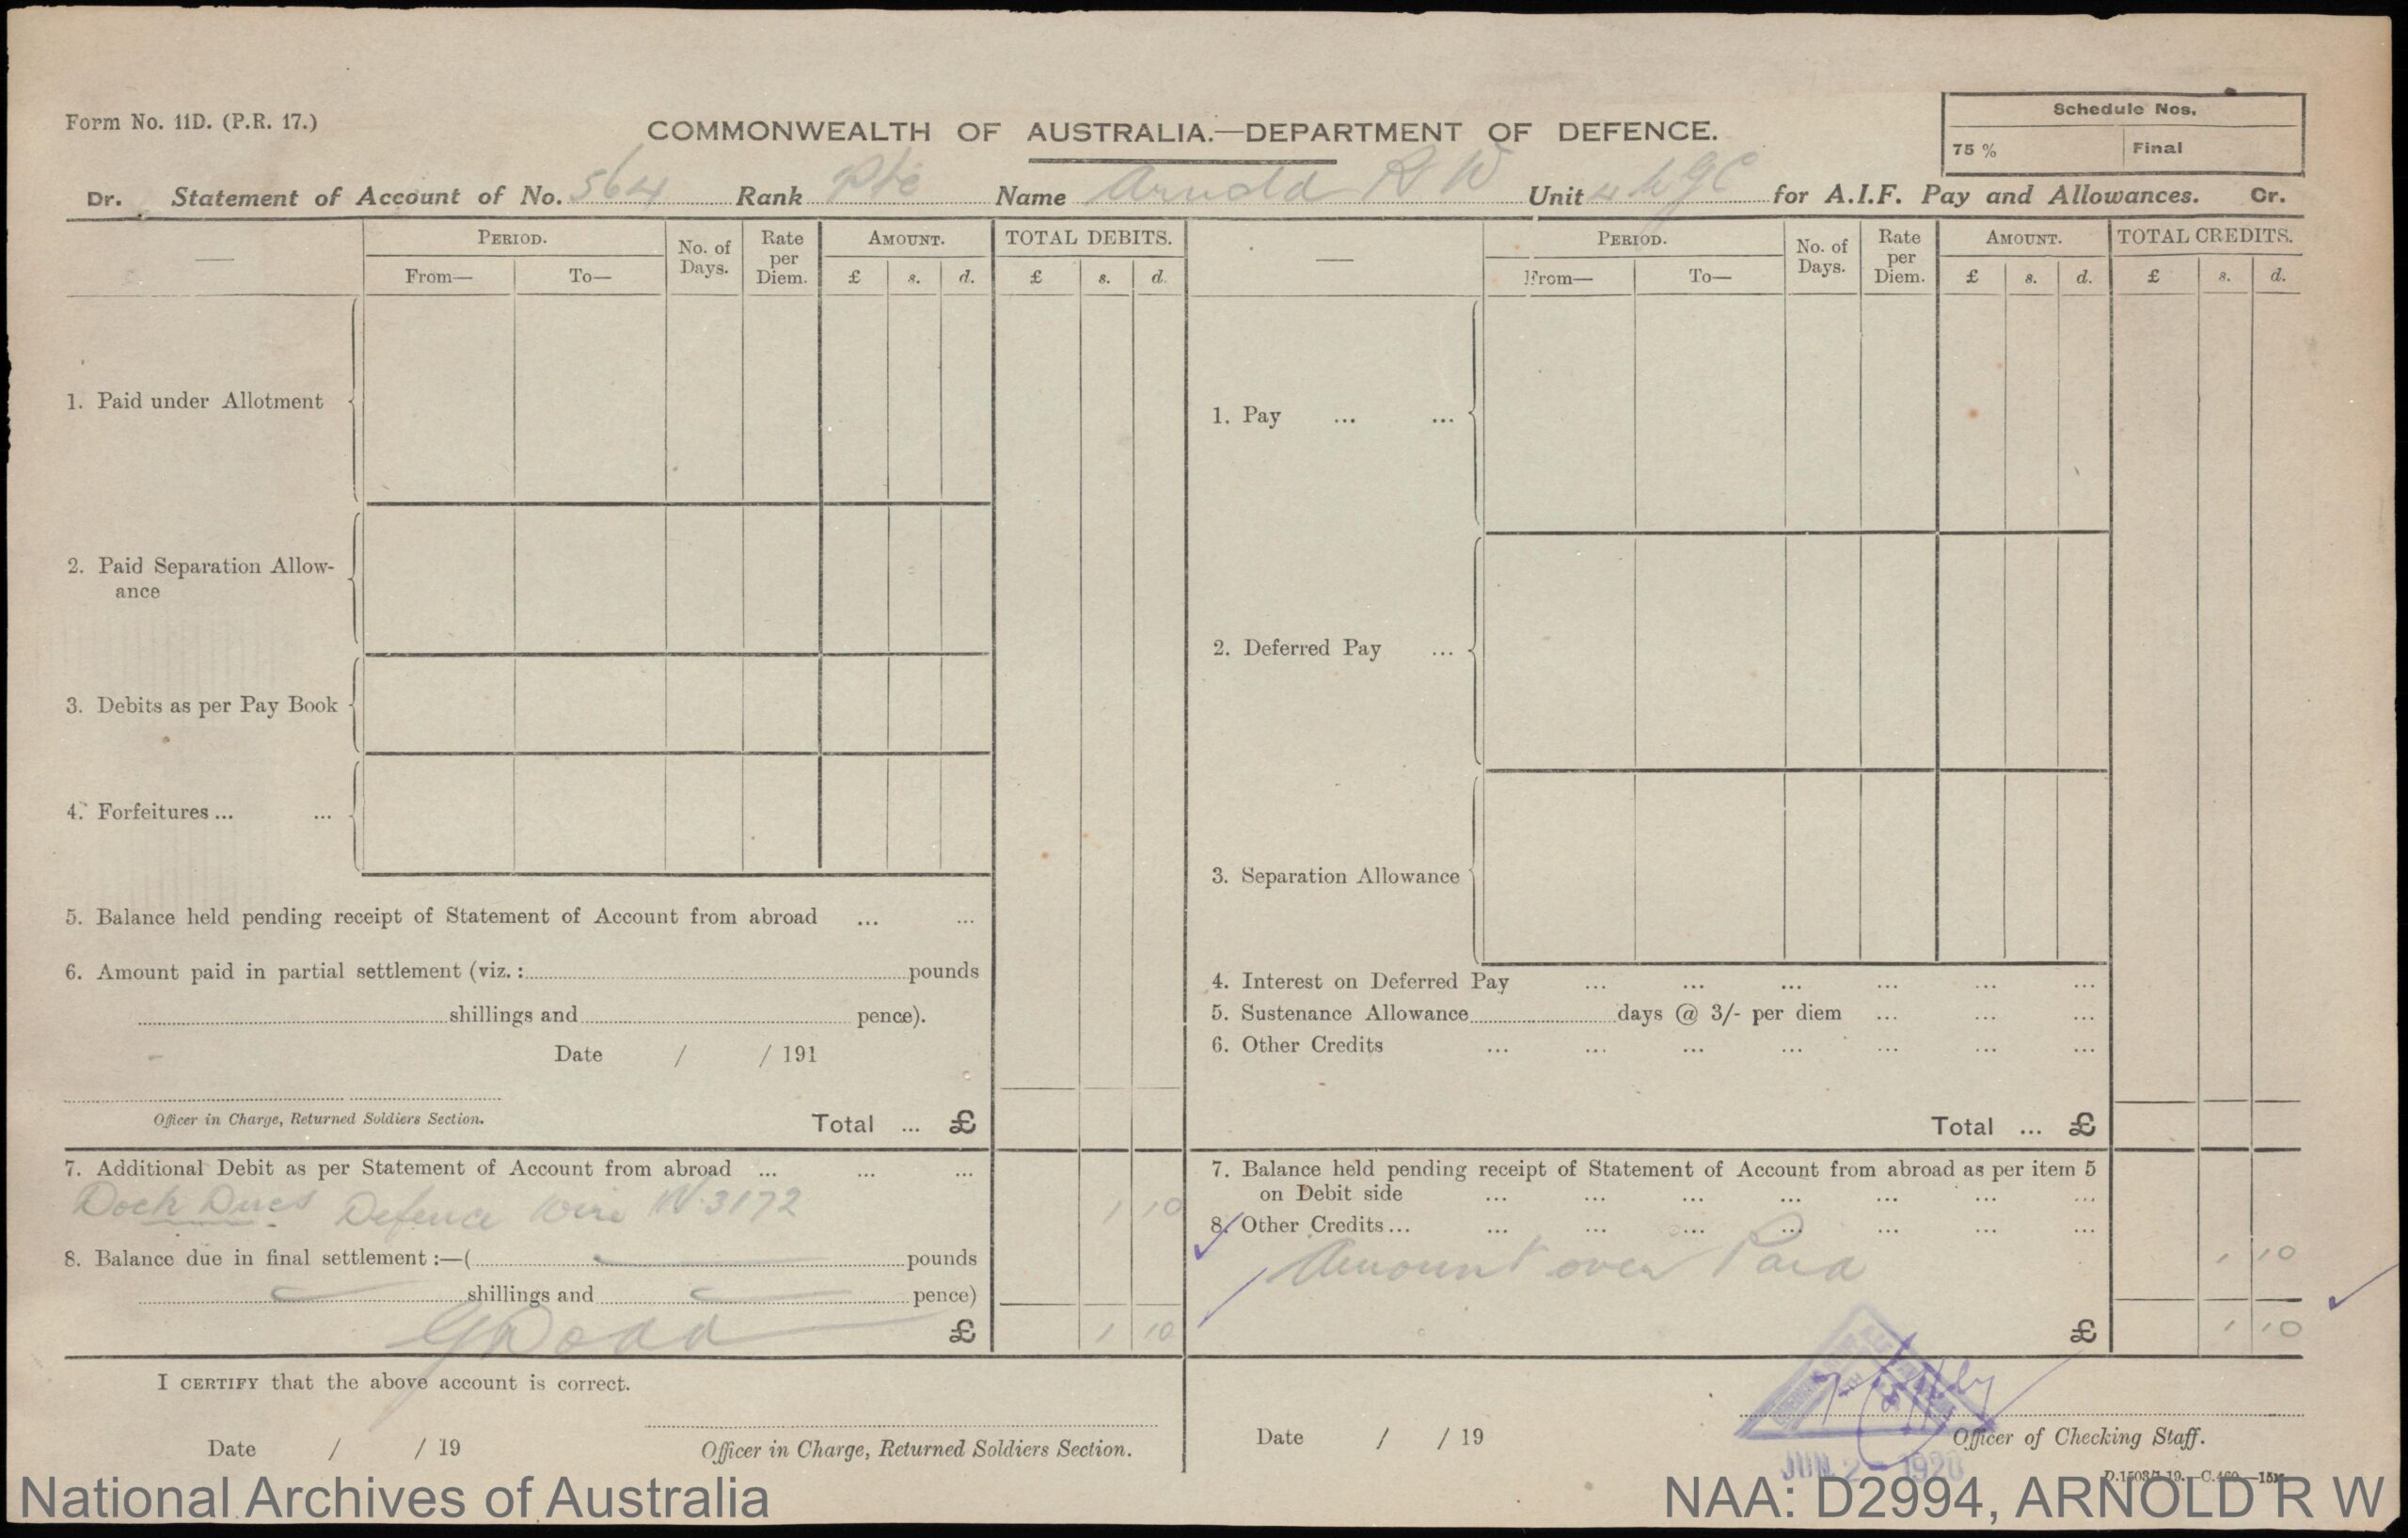 Form No. 11D. (P.R. 17.)
COMMONWEALTH OF AUSTRALIA.—DEPARTMENT OF DEFENCE.
Schedule Nos.
75 % Final
Dr. Statement of Account of No. 564 Rank Pte Name Arnold R W Unit for A.I.F. Pay and Allowances. Cr.
— PERIOD. No. of Days. Rate per Diem. AMOUNT. TOTAL DEBITS.
From— To— £ s. d. £ s. d.
1. Paid under Allotment
2. Paid Separation Allow-
ance
3. Debits as per Pay Book
4. Forfeitures ... ...
5. Balance held pending receipt of Statement of Account from abroad ... ...
6. Amount paid in partial settlement (viz. : pounds
shillings and pence).
Date / / 191
Officer in Charge, Returned Soldiers Section.
Total ... £
7. Additional Debit as per Statement of Account from abroad ... ... ...
Dock Dues Defence Wire W 3172 1 10
8. Balance due in final settlement :—( — pounds
— shillings and — pence)
G Dodd
£ 1 10
I CERTIFY that the above account is correct.
Date / / 19
Officer in Charge, Returned Soldiers Section.
— PERIOD. No. of Days. Rate per Diem. AMOUNT. TOTAL CREDITS.
From— To— £ s. d. £ s. d.
1. Pay ... ...
2. Deferred Pay ...
3. Separation Allowance
4. Interest on Deferred Pay ... ... ... ... ... ...
5. Sustenance Allowance days @ 3/- per diem ... ... ...
6. Other Credits ... ... ... ... ... ... ...
Total ... £
7. Balance held pending receipt of Statement of Account from abroad as per item 5
on Debit side ... ... ... ... ... ... ...
8. Other Credits ... ... ... ... ... ... ... ...
Amount over Paid 1 10
£ 1 10
Date / / 19
Officer of Checking Staff.
JUN 2 - 1920
National Archives of Australia
NAA: D2994, ARNOLD R W